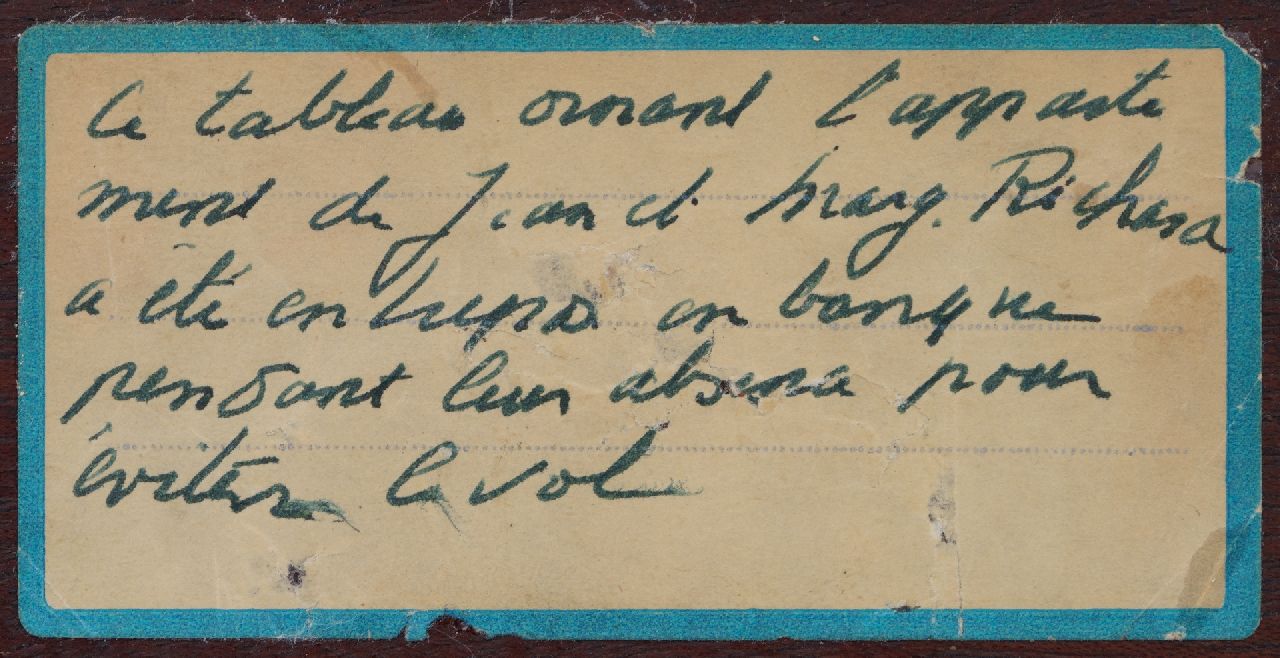 Ce tableau ornant l'apparte
ment de Jean et Marg. Richard
a été entrepos en banque
pendant leur absence pour
éviter le vol